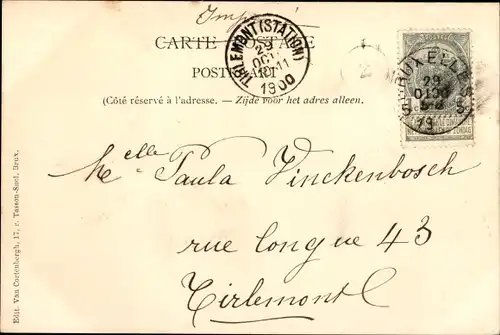 Imprimé
CARTE POSTALE
TIRLEMONT (STATION)
29
OCT
10-11
1900
POSTKAART
(Côté réservé à l'adresse. — Zijde voor het adres alleen.
BRUXELLES
29
OCT
Melle Paula Vinckenbosch
rue longue 43
Tirlemont
Edit. Van Cortenbergh, 17, r. Tasson-Snel, Brux.